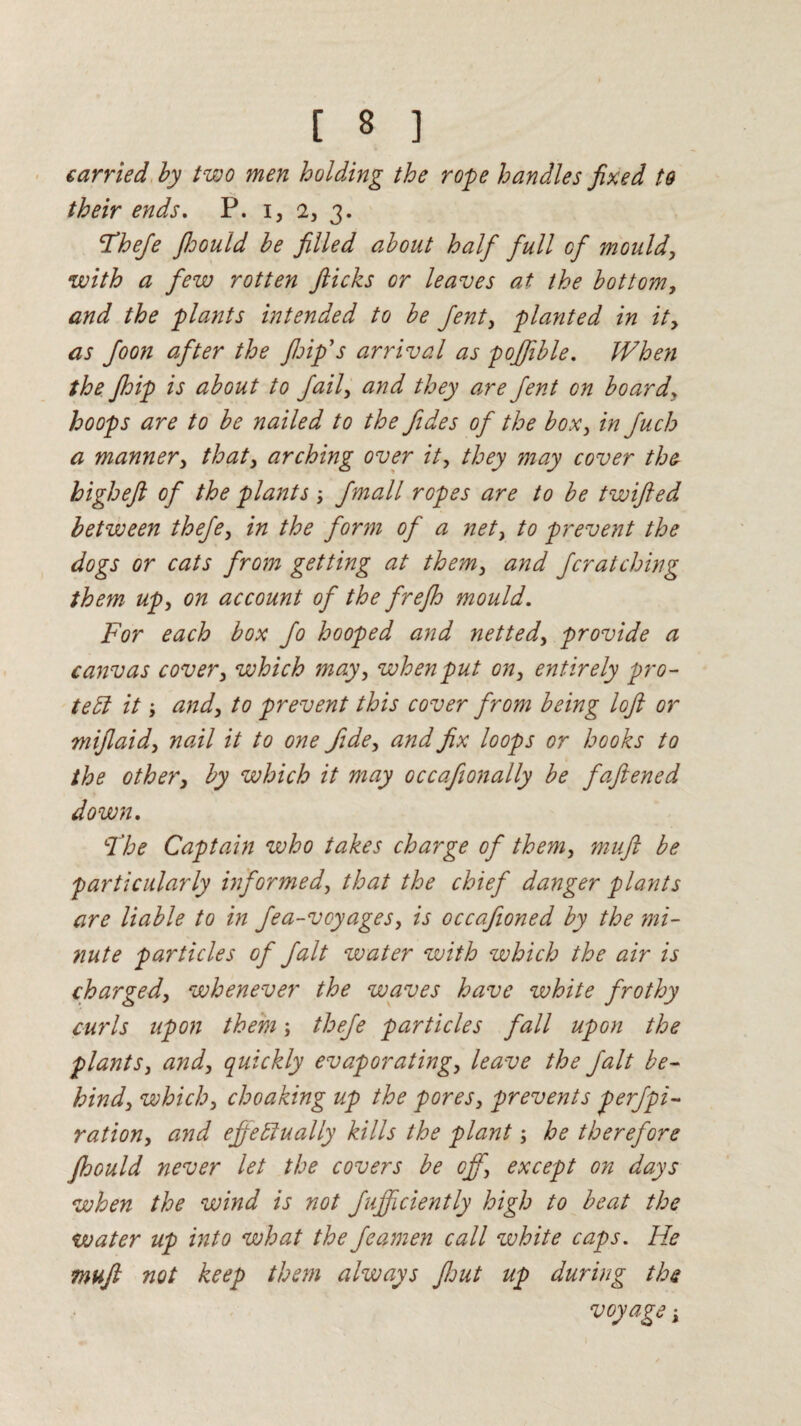 [ 8 ]
carried by two men holding the rope handles fixed to
their ends. P. 1, 2, 3.
Theſe ſhould be filled about half full of mould,
with a few rotten ſticks or leaves at the bottom,
and the plants intended to be ſent, planted in it,
as ſoon after the ſhip's arrival as poſſible. When
the ſhip is about to ſail, and they are ſent on board,
hoops are to be nailed to the ſides of the box, in ſuch
a manner, that, arching over it, they may cover the
higheſt of the plants; ſmall ropes are to be twiſted
between theſe, in the form of a net, to prevent the
dogs or cats from getting at them, and ſcratching
them up, on account of the freſh mould.
For each box ſo hooped and netted, provide a
canvas cover, which may, when put on, entirely pro-
tect it; and, to prevent this cover from being loſt or
miſlaid, nail it to one ſide, and fix loops or hooks to
the other, by which it may occaſionally be faſtened
down.
The Captain who takes charge of them, muſt be
particularly informed, that the chief danger plants
are liable to in ſea-voyages, is occaſioned by the mi-
nute particles of ſalt water with which the air is
charged, whenever the waves have white frothy
curls upon them; theſe particles fall upon the
plants, and, quickly evaporating, leave the ſalt be-
hind, which, choaking up the pores, prevents perſpi-
ration, and effectually kills the plant; he therefore
ſhould never let the covers be off, except on days
when the wind is not ſufficiently high to beat the
water up into what the ſeamen call white caps. He
muſt not keep them always ſhut up during the
voyage;